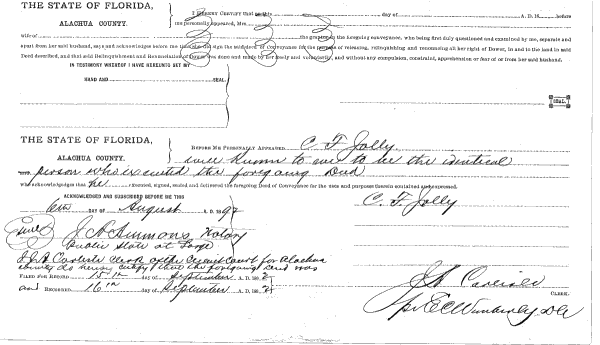 THE STATE OF FLORIDA,
ALACHUA COUNTY.
I HEREBY CERTIFY that on this day of A. D. 18 before
me personally appeared, Mrs.
wife of the grantor in the foregoing conveyance, who being first duly questioned and examined by me, separate and
apart from her said husband, says and acknowledges before me that she did sign the said deed of Conveyance for the purpose of releasing, relinquishing and renouncing all her right of Dower, in and to the land in said
Deed described, and that said Relinquishment and Renunciation of Dower was done and made by her freely and voluntarily, and without any compulsion, constraint, apprehension or fear of or from her said husband.
IN TESTIMONY WHEREOF I HAVE HEREUNTO SET MY
HAND AND SEAL
SEAL
THE STATE OF FLORIDA,
ALACHUA COUNTY.
BEFORE ME PERSONALLY APPEARED C. F. Jolly
well known to me to be the identical
person who executed the foregoing Deed
who acknowledges that he executed, signed, sealed and delivered the foregoing Deed of Conveyance for the uses and purposes therein contained and expressed.
ACKNOWLEDGED AND SUBSCRIBED BEFORE ME THIS
6th DAY OF August A. D. 1892
C. F. Jolly
J. A. Ammons, Notary
Public State at Large
I J A Carlisle Clerk of the Circuit Court for Alachua
County do hereby certify that the foregoing Deed was
FILED FOR RECORD 15th day of September A. D. 189
and RECORDED 16th day of September A. D. 189
J A Carlisle CLERK.
per E C Wimberly D C